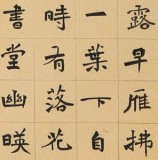 露早雁拂
一葉下自
時有落花
書堂幽暎